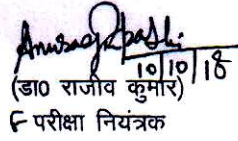 10/10/18
(डा० राजीव कुमार)
परीक्षा नियंत्रक